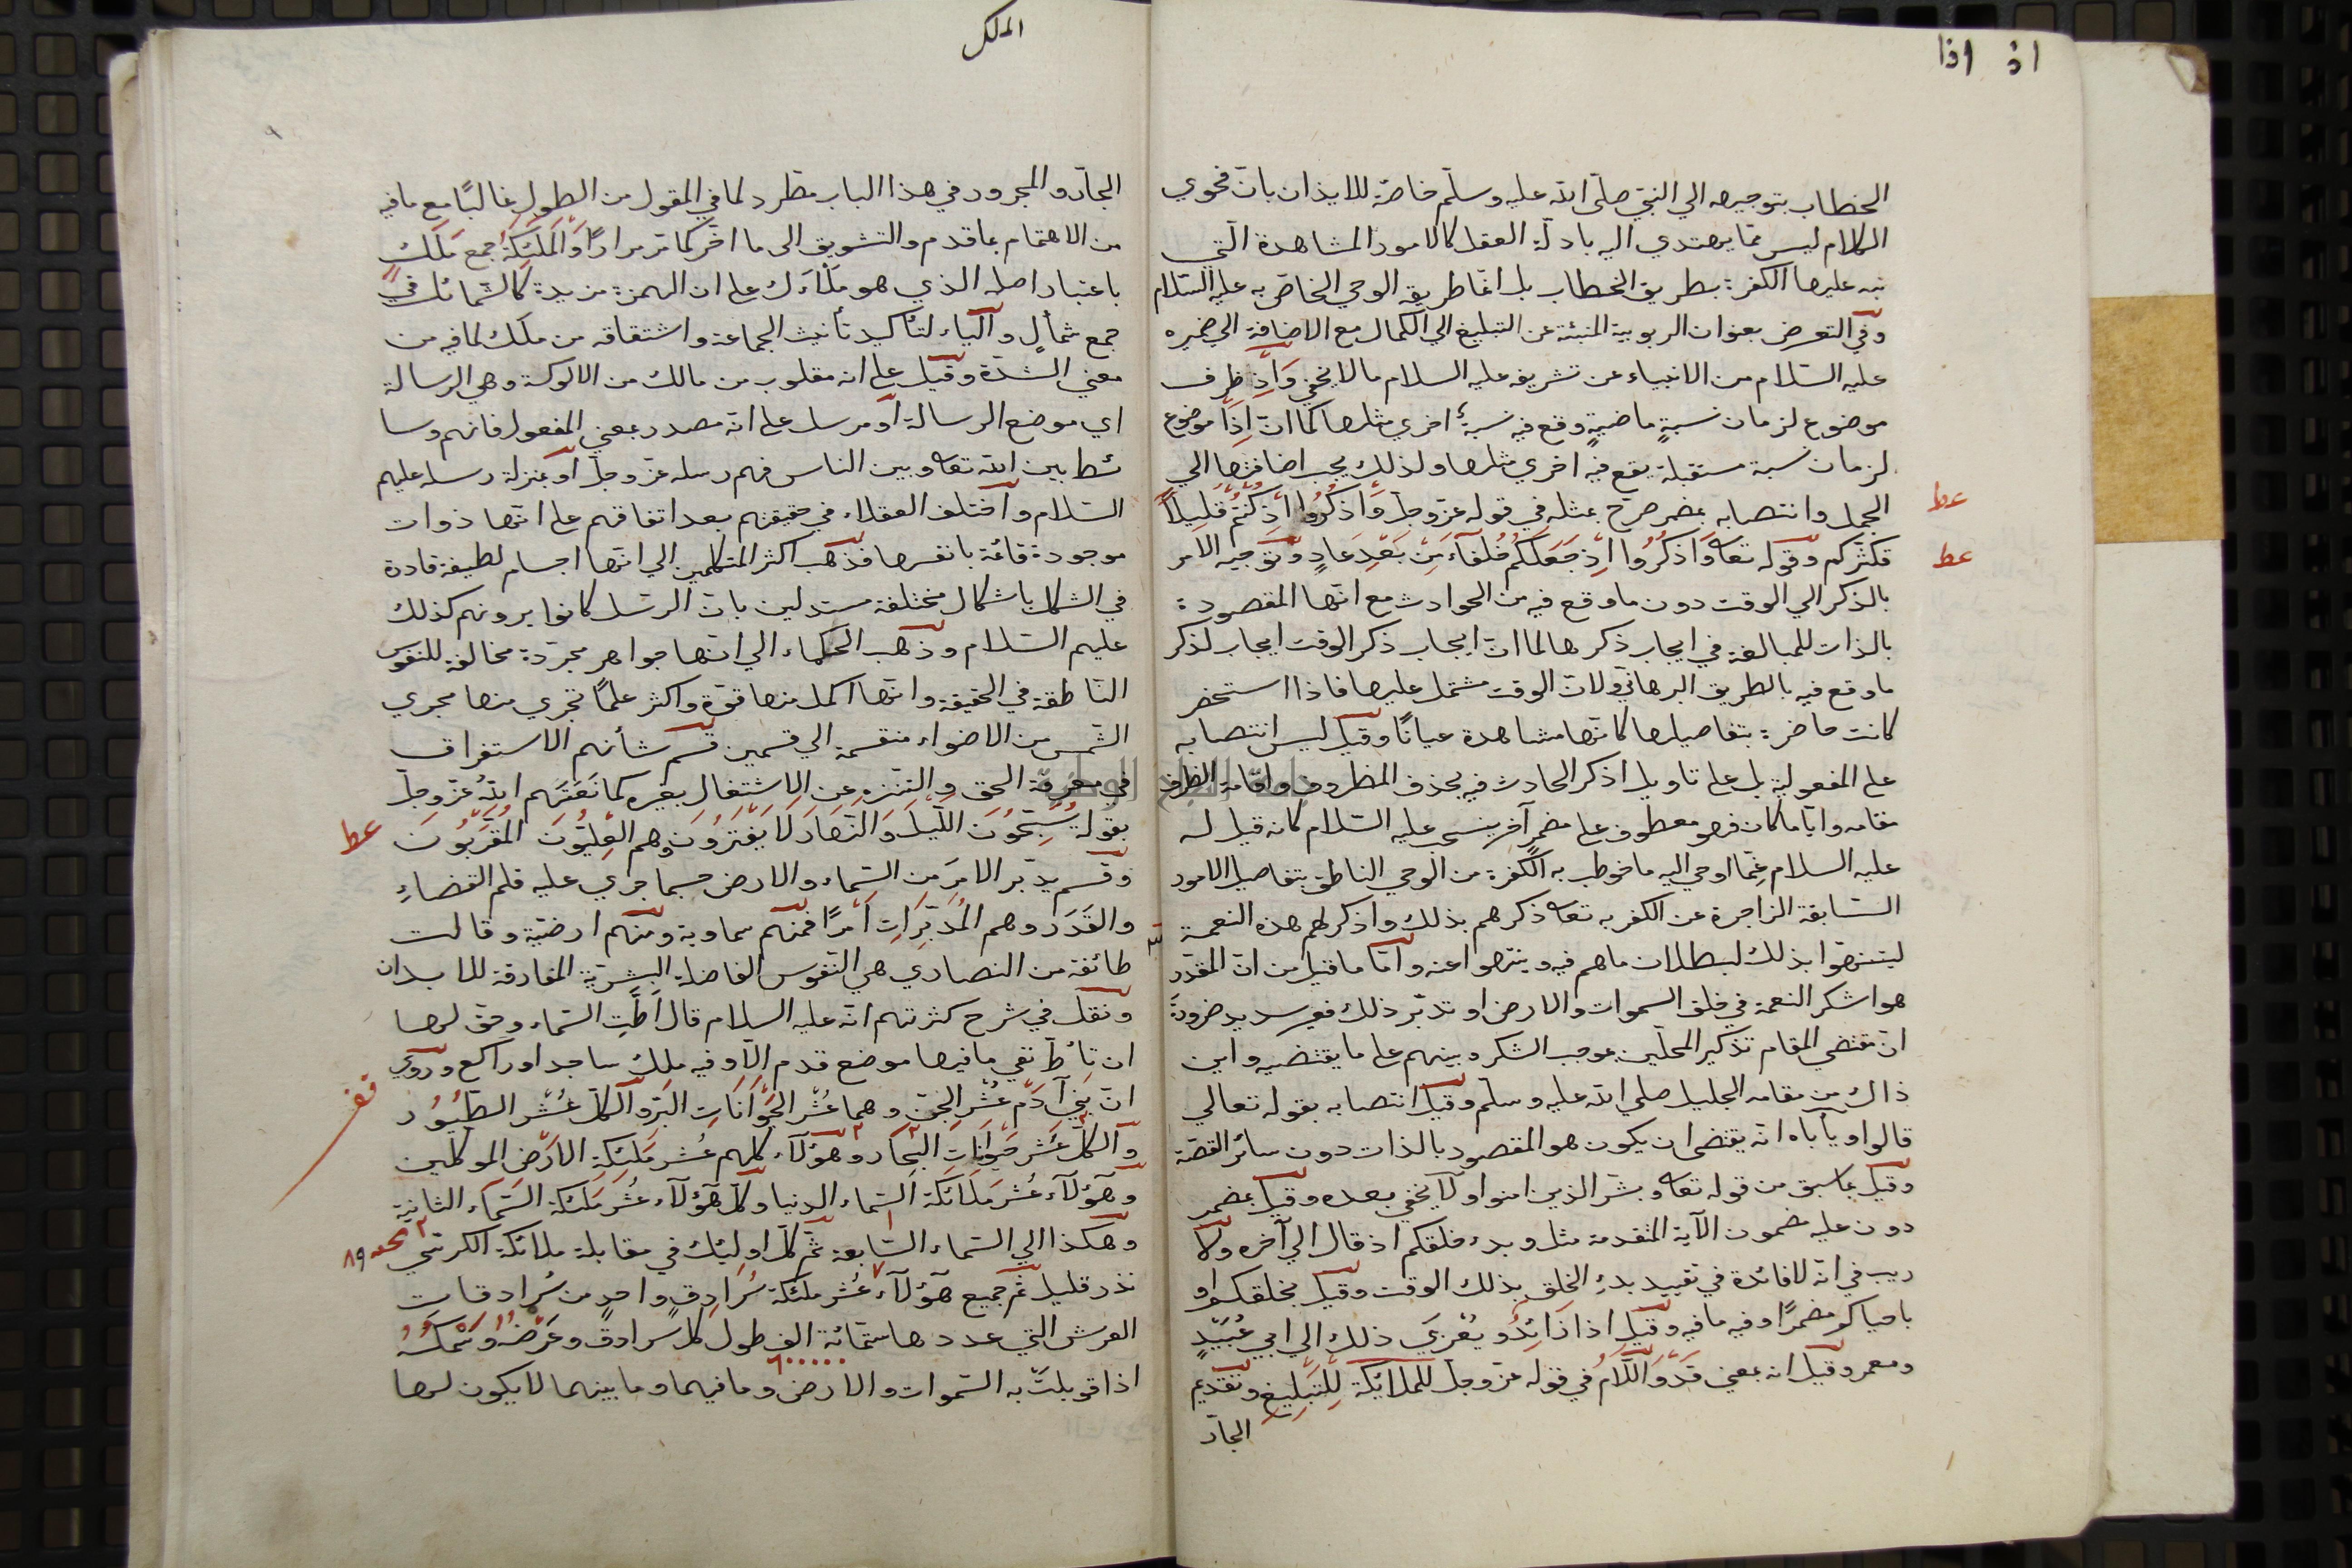 اذ واذا
الخطاب بتوجيهه الي النبي صلى الله عليه وسلم خاصة للايذان بان فحوي
الكلام ليس مما يهتدي اليه بادلة العقل كالامور المشاهدة التي
نبه عليها الكفرة بطريق الخطاب بل انما طريقه الوحي الخاص به عليه السلام
وفي التعرض بعنوان الربوبية المنبئة عن التبليغ الي الكمال مع الاضافة الي ضميره
عليه السلام من الانبياء عن تشريفه عليه السلام ما لا يخفي وَاِذ ظرف
موضوع لزمان نسبةٍ ماضيةٍ وقع فيه نسبةٌ اخري مثلها كما ان اِذَا موضوع
لزمان نسبة مستقبلة يقع فيه اخري مثلها ولذلك يجب اضافتها الي
عط
الجمل وانتصابه بمضمر صرح بمثله في قوله عز وجل وَاذكُرُوا اِذ كُنتُم قَلِيلاً
عط
فكثركم وقوله تعا وَاذكُرُوا اِذ جَعَلَكُم خُلَفَآءَ مِن بَعدِ عَادٍ وتوجيه الامر
بالذكر الي الوقت دون ما وقع فيه من الحوادث مع انها المقصودة
بالذات للمبالغة في ايجاب ذكرها لما ان ايجاب ذكر الوقت ايجاب لذكر
ما وقع فيه بالطريق البرهاني ولان الوقت مشتمل عليها فاذا استحضر
كانت حاضرة بتفاصيلها كانها مشاهدة عيانًا وقيل ليس انتصابه
على المفعولية بل على تاويل اذكر الحادث فيه بحذف المظروف واقامة الظرف
مقامه وايا ما كان فهو معطوف على مضمر آخر ينسحب عليه السلام كانه قيل له
عليه السلام غِبَّما اوحي اليه ما خوطب به الكفرة من الوحي الناطق بتفاصيل الامور
السابقة الزاجرة عن الكفر به تعا ذكرهم بذلك واذكر لهم هذه النعمة
ليتنبهوا بذلك لبطلان ما هم فيه وينتهوا عنه واما ما قيل من ان المقدر
هو اشكر النعمة في خلق السموات والارض او تدبر ذلك فغير سديد ضرورة
ان مقتضي المقام تذكير المخلين بموجب الشكر وبينهم على ما يقتضيه واين
ذاك من مقامه الجليل صلى الله عليه وسلم وقيل انتصابه بقوله تعالي
قالوا ويأباه انه يقتضي ان يكون هو المقصود بالذات دون سائر القصة
وقيل بما سبق من قوله تعا وبشر الذين امنوا ولا يخفي بعده وقيل بمضمر
دون عليه مضمون الآية المتقدمة مثل وبدء خلقكم اذ قال الي آخره ولا
ريب في انه لا فائدة في تقييد بدءِ الخلق بذلك الوقت وقيل بخلقكم او
باحياكم مضمرًا وفيه ما فيه وقيل اذ زَائِدٌ ويُعْزَي ذلك الي ابي عُبَيدٍ
ومعمر وقيل انه بمعني قَد وَاللَّامُ في قوله عز وجل للملائِكَة للتَّبلِيغِ وتقديم
الجار
الملك
الجار والمجرور في هذا الباب مطرد لما في المقول من الطول غالبًا مع ما فيه
من الاهتمام بما قدم والتشويق الى ما اخر كما مر مرارًا وَالْمَلٰئِكَةُ جمع مَلَك
باعتبار اصله الذي هو مَلأَك على ان الهمزة مزيدة كالشمائل في
جمع شمألٍ والتاء لتأكيد تأنيث الجماعة واشتقاقه من ملك لما فيه من
معني الشدة وقيل على انه مقلوب من مالك من الالوكة وهي الرسالة
اي موضع الرسالة او مرسل على انه مصدر بمعني المفعول فانهم وسا
ئط بين الله تعا وبين الناس فهم رسله عز وجل او بمنزلة رسله عليهم
السلام واختلف العقلاء في حقيقتهم بعد اتفاقهم على انها ذوات
موجودة قائمة بانفسها فذهب اكثر المتكلمين الي انها اجسام لطيفة قادرة
في الشكل باشكال مختلفة مستدلين بان الرسل كانوا يرونهم كذلك
عليهم السلام وذهب الحكماء الي انها جواهر مجردة مخالفة للنفوس
الناطقة في الحقيقة وانها اكمل منها قوة واكثر علمًا تجري منها مجري
الشمس من الاضواء منقسمة الي قسمين قسم شأنهم الاستغراق
في معرفة الحق والتنزه عن الاشتغال بغيره كما نَعَتَهم اللهُ عز وجل
عط
بقوله يُسَبِّحُونَ اللَّيلَ وَالنَّهَارَ لَا يَفْتَرُونَ وهم العِلِيُّونَ المُقَرَّبُونَ
وقسم يدبر الامرَ من السماء والارض حسبما جري عليه قلم القضاءِ
والقَدَر وهم المُدَبِّرَاتِ اَمْرًا فمنهم سماوية ومنهم ارضية وقالت
طائفة من النصاري هي النفوس الفاضلة البشرية المفارقة للابدان
ونقل في شرح كثرتهم انه عليه السلام قال اَطَّتِ السماء وحق لها
ان تأط تقي ما فيها موضع قدم الا وفيه ملك ساجد او راكع وروي
ان بَنِي آدَمَ عُشْر الجِنّ وهما عُشْر الحَيَوَانَاتِ البَرّ والكل عُشْر الطُيُور
والكل عُشْر حَيَوَانَاتِ البِحَار وهؤلَآء كلهم عُشر مَلَئِكَةِ الارضِ الموكلين
وهؤلآء عُشر مَلَائكَة السماء الدنيا وكل هؤلآء عُشر مَلَئكة السَّمَآءِ الثانية
وهكذا الي السماء السابعة ثم كل اولئك في مقابلة ملائكة الكرسي
نذر قليل ثم جميع هؤلآء عُشر ملئكة سُرَادِقٍ واحدٍ من سُرادقات
العرش التي عددها ستمائة الف طول كل سرادق وعَرْضُهُ وسَمْكُهُ
٦٠٠٠٠٠
اذا قوبلت به السموات والارض وما فيهما وما بينهما لا يكون لها